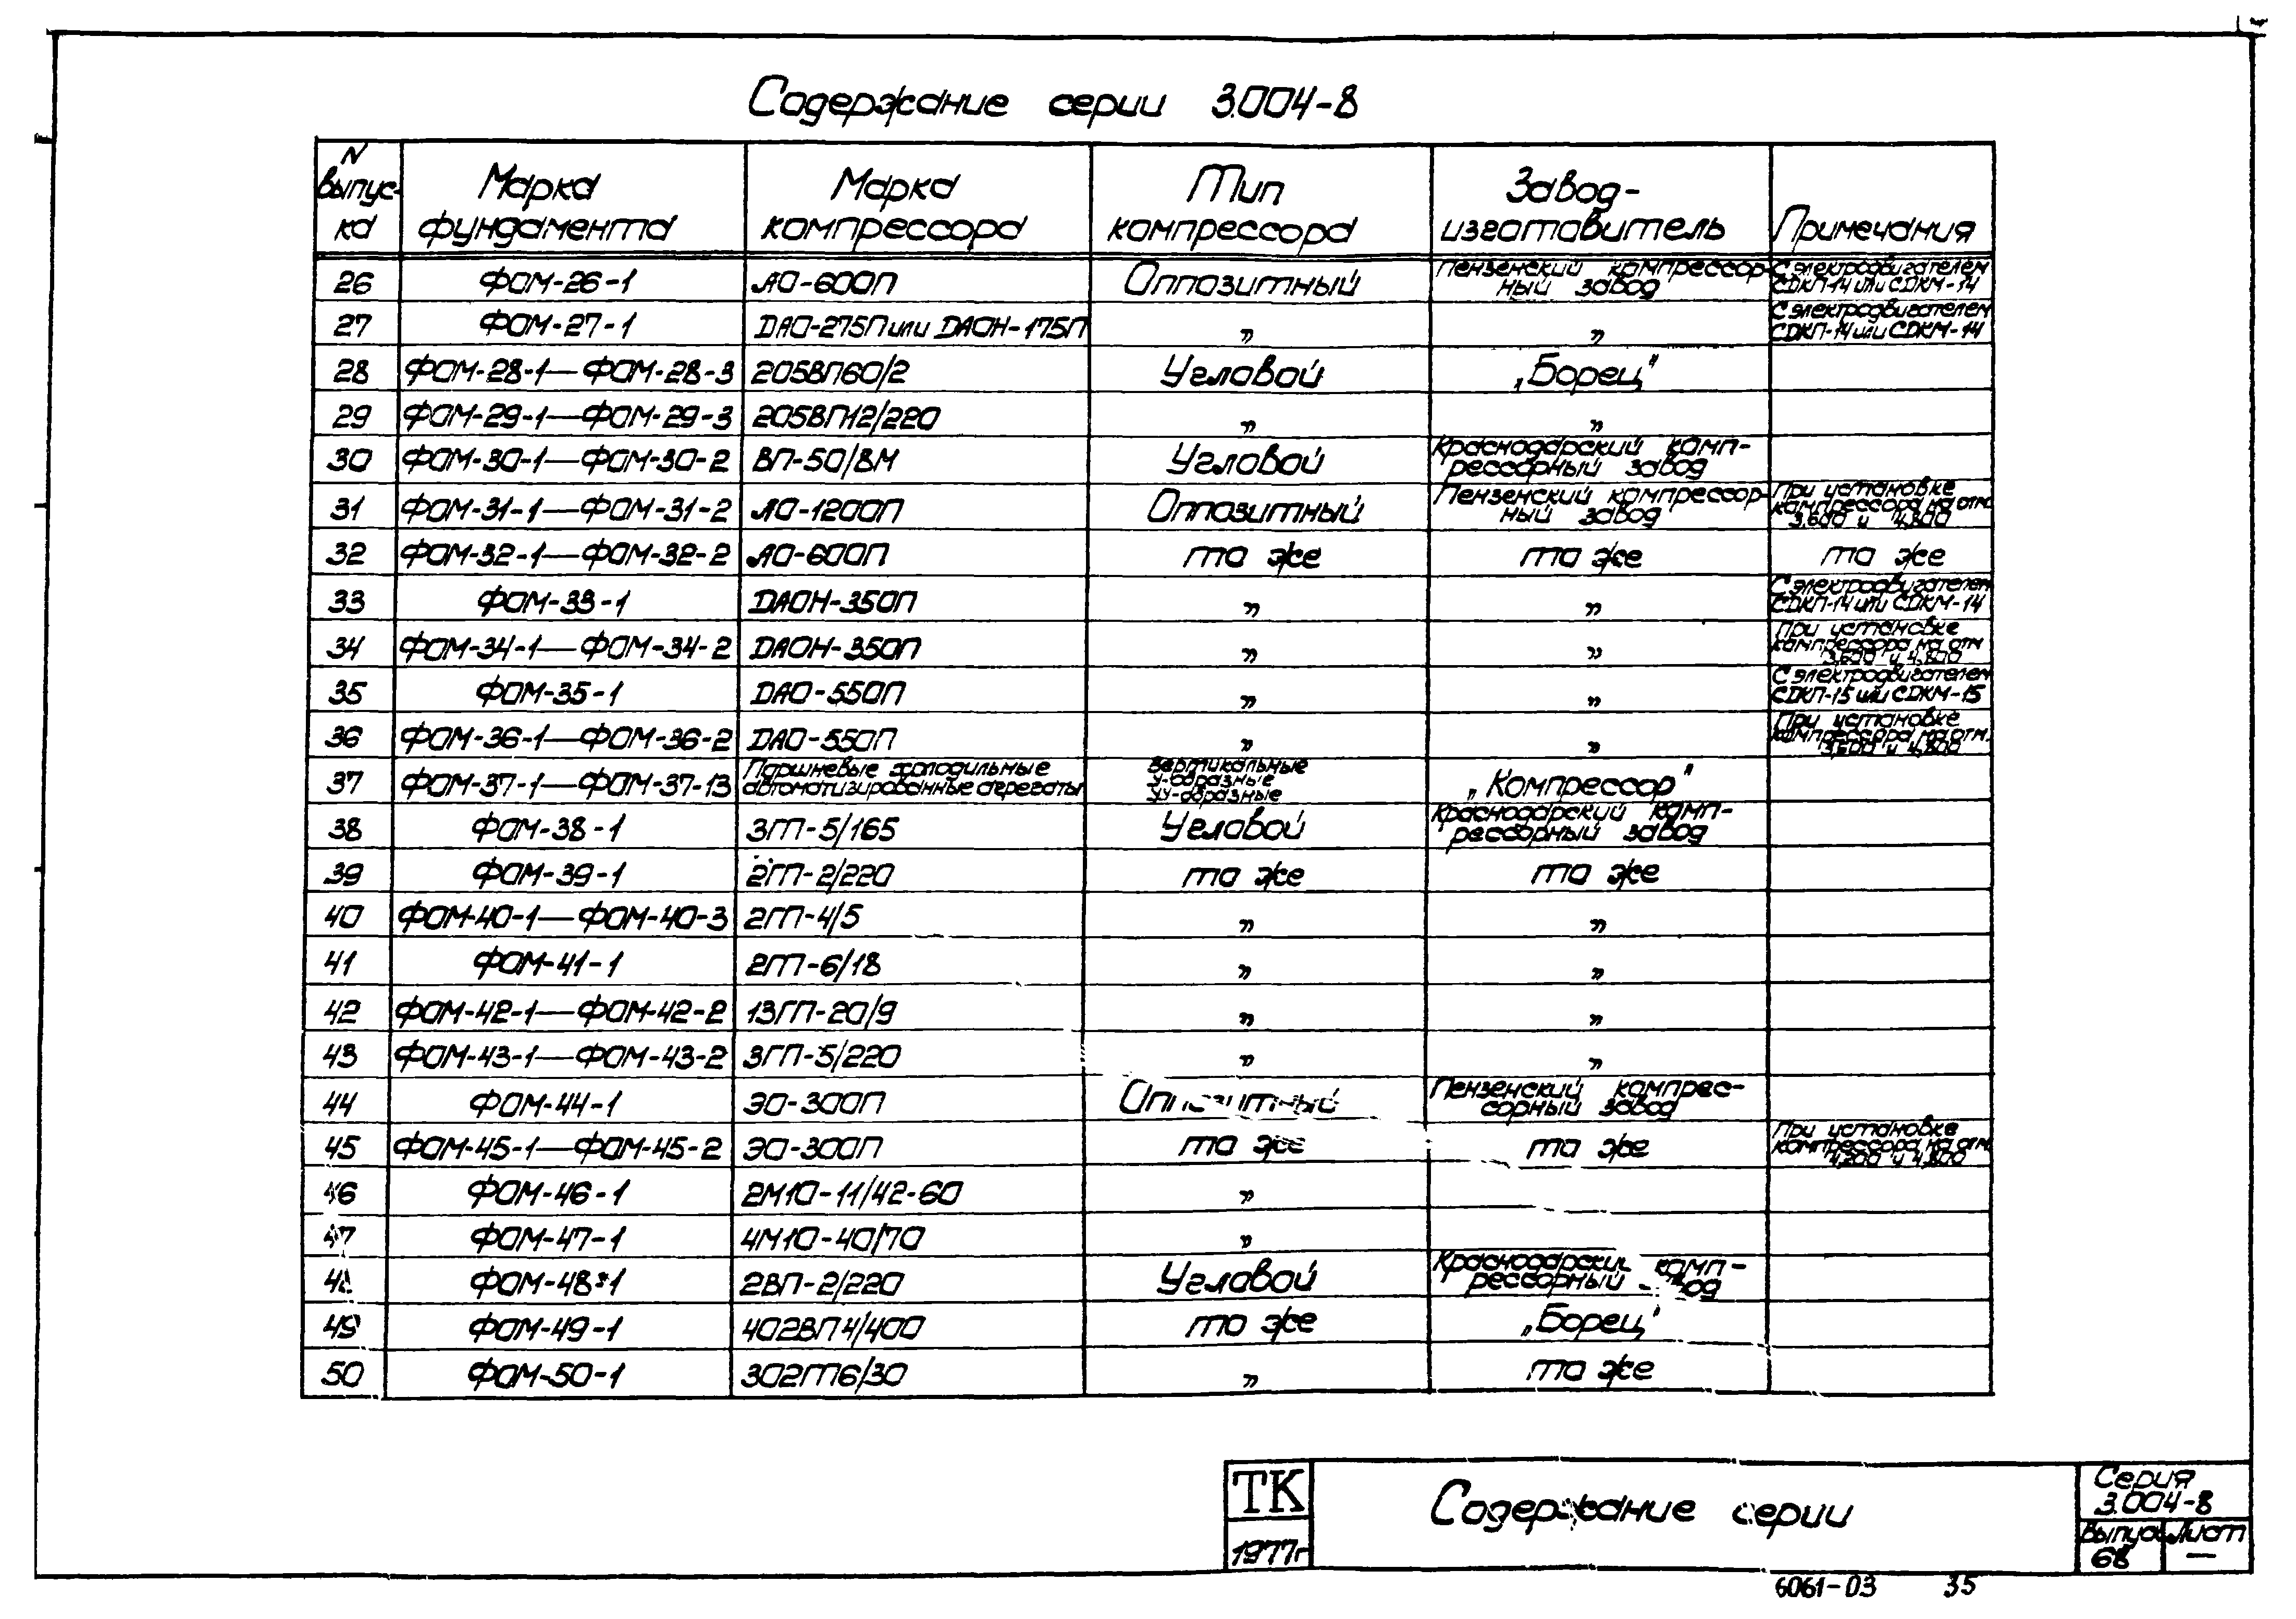 Содержание серии 3.004-8
N выпус-ка Марка фундамента Марка компрессора Тип компрессора Завод-изготовитель Примечания
26 ФОМ-26-1 АО-600П Оппозитный Пензенский компрессор-ный завод С электродвигателем СДКП-14 или СДКМ-14
27 ФОМ-27-1 DАО-275П или DАОН-175П „ „ С электродвигателем СDКП-14 или СDКМ-14
28 ФОМ-28-1—ФОМ-28-3 205ВП60/2 Угловой „Борец"
29 ФОМ-29-1—ФОМ-29-3 205ВП12/220 „ „
30 ФОМ-30-1—ФОМ-30-2 ВП-50/8М Угловой Краснодарский комп-рессорный завод
31 ФОМ-31-1—ФОМ-31-2 АО-1200П Оппозитный Пензенский компрессор-ный завод При установке компрессора на отм. 3,600 и 4,800
32 ФОМ-32-1—ФОМ-32-2 АО-600П то же то же то же
33 ФОМ-33-1 DАОН-350П „ „ С электродвигателем СDКП-14 или СDКМ-14
34 ФОМ-34-1—ФОМ-34-2 DАОН-350П „ „ При установке компрессора на отм 3,600 и 4,800
35 ФОМ-35-1 DАО-550П „ „ С электродвигателем СDКП-15 или СDКМ-15
36 ФОМ-36-1—ФОМ-36-2 DАО-550П „ „ При установке компрессора на отм. 3,600 и 4,800
37 ФОМ-37-1—ФОМ-37-13 Поршневые холодильные автоматизированные агрегаты Вертикальные У-образные УУ-образные „Компрессор"
38 ФОМ-38-1 3ГП-5/165 Угловой Краснодарский комп-рессорный завод
39 ФОМ-39-1 2ГП-2/220 то же то же
40 ФОМ-40-1—ФОМ-40-3 2ГП-4/5 „ „
41 ФОМ-41-1 2ГП-6/18 „ „
42 ФОМ-42-1—ФОМ-42-2 13ГП-20/9 „ „
43 ФОМ-43-1—ФОМ-43-2 3ГП-5/220 „ „
44 ФОМ-44-1 ЭО-300П Оппозитный Пензенский компрес-сорный завод
45 ФОМ-45-1—ФОМ-45-2 ЭО-300П то же то же При установке компрессора на отм. 4,200 и 4,800
46 ФОМ-46-1 2М10-11/42-60 „
47 ФОМ-47-1 4М10-40/70 „
48 ФОМ-48-1 2ВП-2/220 Угловой Краснодарский комп-рессорный завод
49 ФОМ-49-1 402ВП4/400 то же „Борец"
50 ФОМ-50-1 302ГП6/30 „ то же
ТК
1977г
Содержание серии
Серия
3.004-8
Выпуск Лист
68 —
6061-03 35